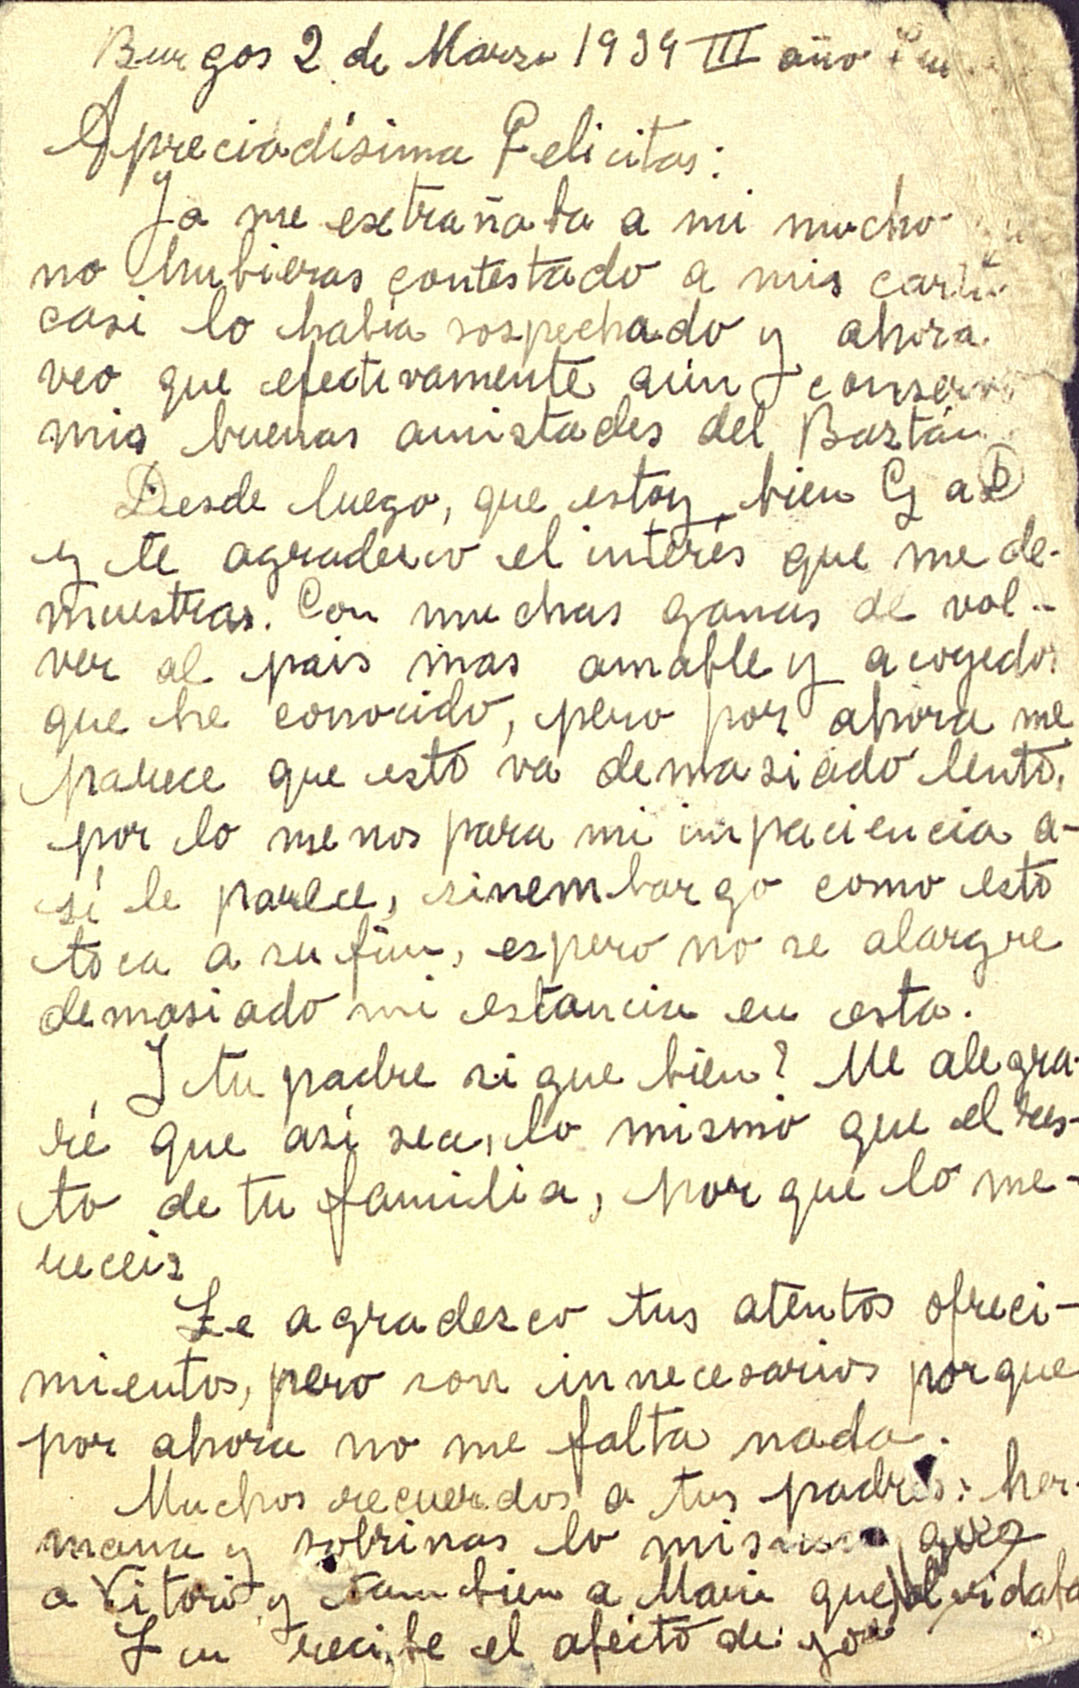 Burgos 2 de Marzo 1939 III año
Apreciadísima Felicitas:
Ya me extrañaba a mi mucho que
no hubieras contestado a mis cartas
casi lo habia sospechado y ahora
veo que efectivamente aún conservo
mis buenas amistades del Baztán.
Desde luego, que estoy bien G a D
y te agradezco el interés que me de-
muestras. Con muchas ganas de vol-
ver al pais mas amable y acogedor
que he conocido, pero por ahora me
parece que esto va demasiado lento,
por lo menos para mi impaciencia a-
sí le parece, sinembargo como esto
toca a su fin, espero no se alargue
demasiado mi estancia en esta.
Y tu padre sigue bien? Me alegra-
ré que así sea, lo mismo que el res-
to de tu familia, porqué lo me-
receis
Le agradezco tus atentos ofreci-
mientos, pero son innecesarios porque
por ahora no me falta nada.
Muchos recuerdos a tus padres: her-
mana y sobrinas lo mismo que
a Vitori y tambien a Mari que olvidaba
Y tu recibe el afecto de